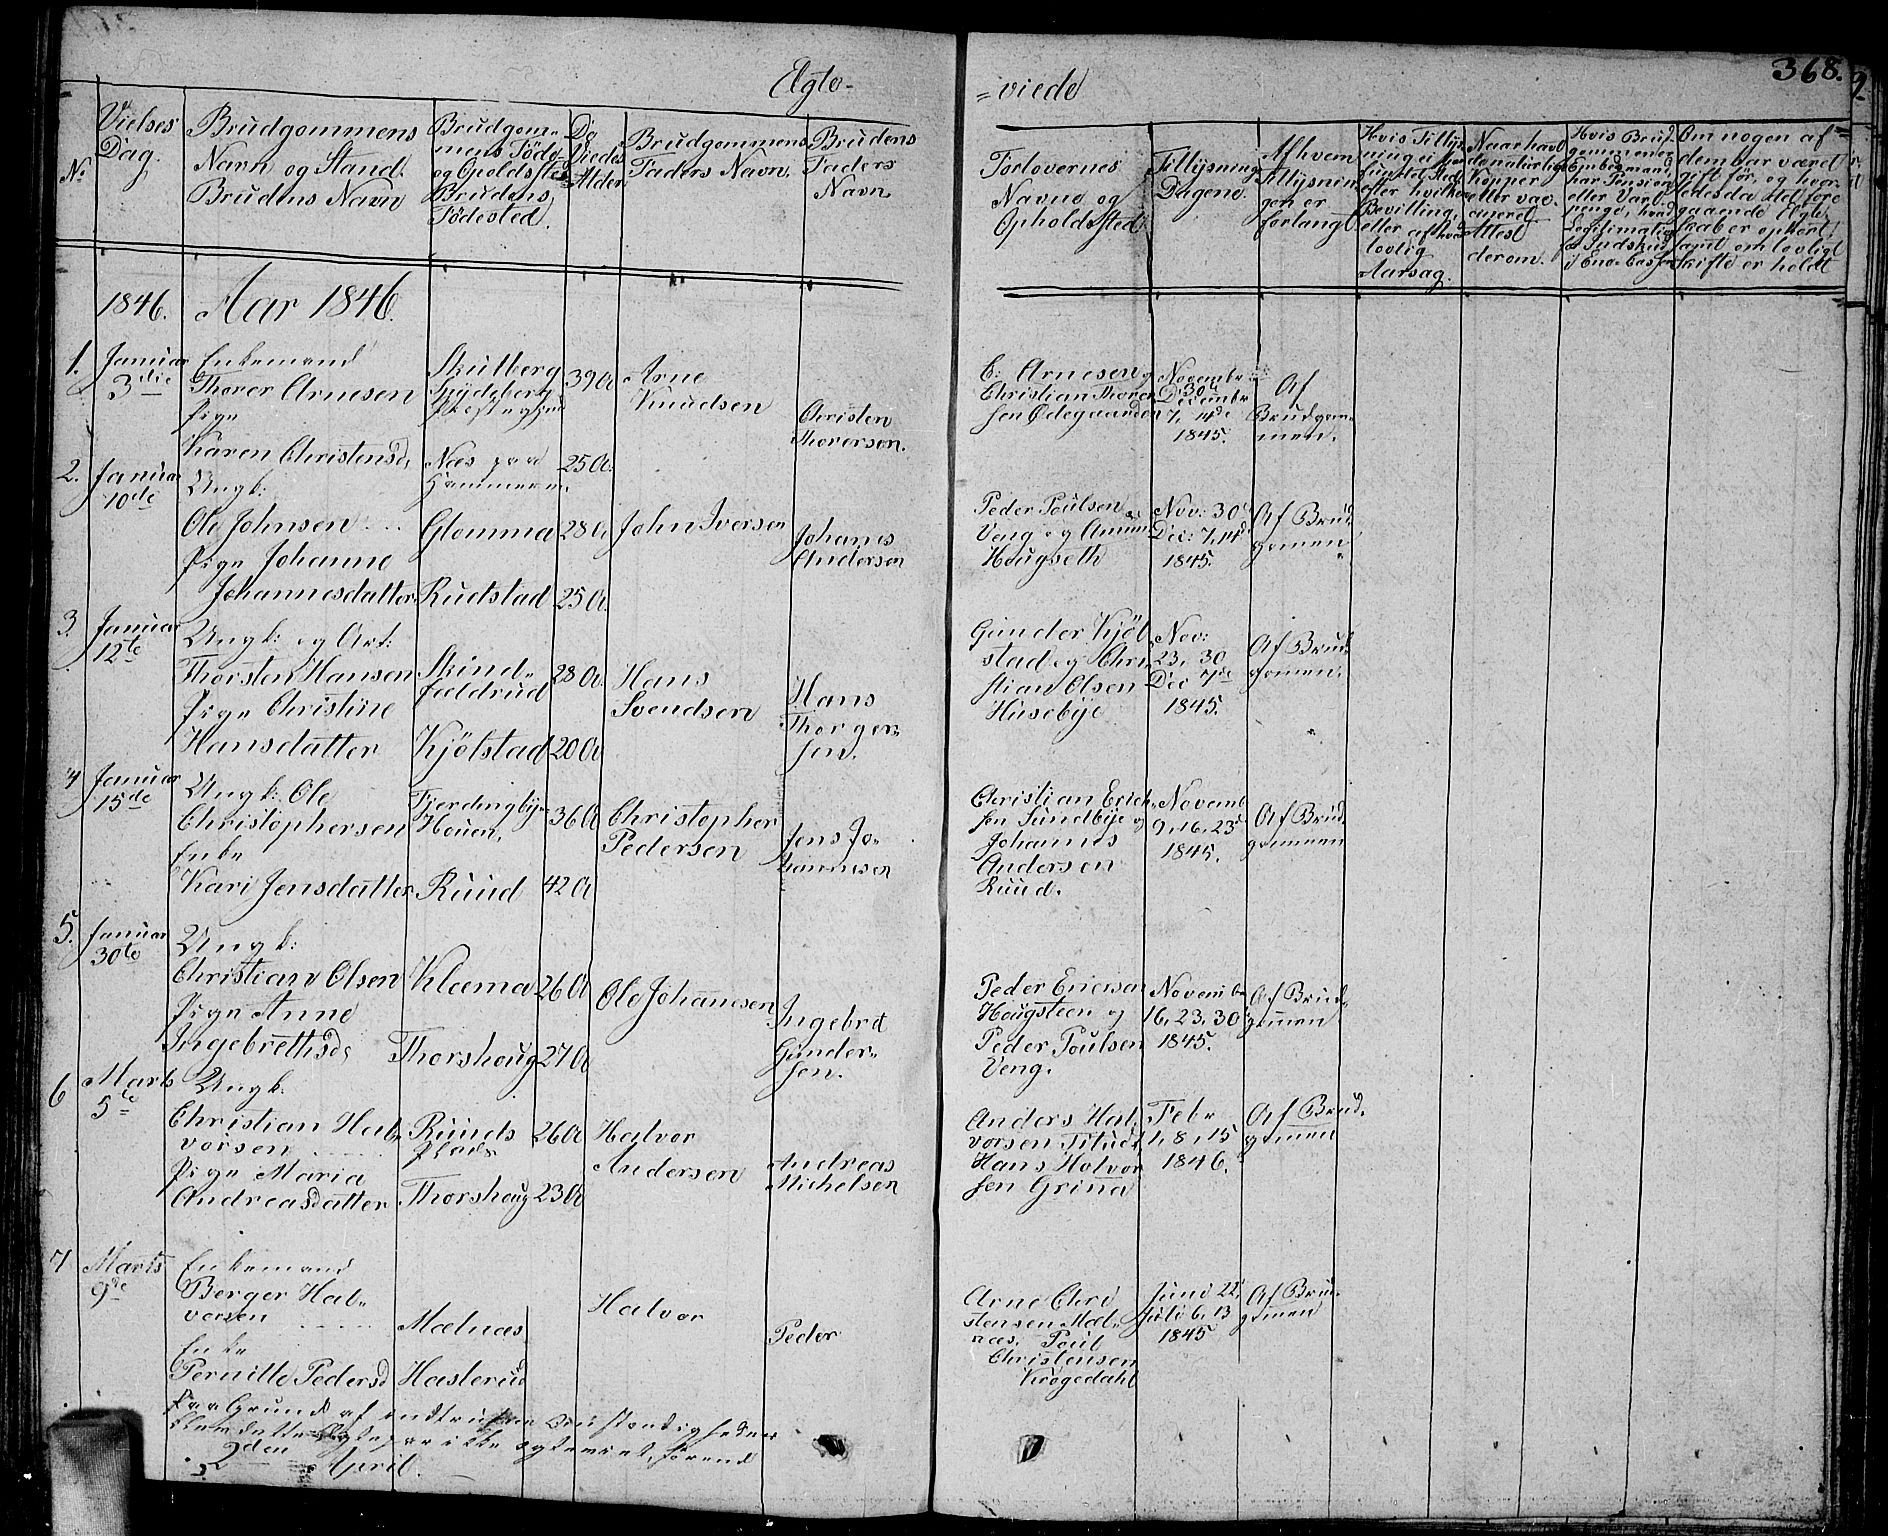 Egte-
=viede
368.
No
Vielses
Dag.
Brudgommens
Navn og Stand.
Brudens Navn
Brudgom-
mens Föde-
og Opoldsted
Brudens
Födested.
De
Viedes
Alder
Brudgommens
Faders Navn.
Brudens
Faders
Navn
Forlovernes
Navne og
Opholdssted
Tillysnings
Dagene.
Af hvem
Tillysnin-
gen er
forlangt
Hvis Tillys-
ning ei har
fundet Sted
efter hvilken
Bevilling,
eller af hvad
lovlig
Aarsag.
Naar havt
de naturlige
Kopper
eller vac-
cineret
Attest
derom.
Hvis Brud-
gommen er
Embedsmand,
har Pension
eller Vart-
penge, hvad
Legitimation
for Indskud
i Enke-Cassen
Om nogen af
dem har været
gift før, og hvor-
ledes da det fore-
gaaende Egte-
skab er ophört,
samt om lovligt
Skifte er holdt
1846.
Aar 1846.
1.
Januar
3die
Enkemand
Thorer Arnesen
Pige
Karen Christensd.
Skulberg
Spydeberg
Præstegjeld
Næs paa
Hammeren.
39 A
25 A.
Arne
Knudsen
Christen
Thorersen.
E: Arnesen og
Christian Thorer-
sen Ødegaarden
Novembr
30
Decembr
7, 14de
1845.
Af
Brudgom-
men.
2.
Januar
10de
Ungk:
Ole Johnsen
Pige Johanne
Johannesdatter
Glomma
Rudstad
28 A
25 A.
John Iversen
Johanes
Andersen
Peder Poulsen
Veng og Amun
Hougseth
Nov: 30
Dec: 7, 14d
1845.
Af Brud-
gomen
3.
Januar
12te
Ungk: og Art:
Thorsten Hansen
Pige Christine
Hansdatter
Skind-
foldrud
Kjölstad
28 A.
20 A
Hans
Svendsen
Hans
Thorger-
sen.
Gunder Kjöl
stad og Chri
stian Olsen
Husebÿe
Nov:
23, 30
Dec 7de
1845.
Af Brud-
gomen.
4
Januar
15de
Ungk: Ole
Christophersen
Enke
Kari Jensdatter
Fjerdingbÿ-
Houen.
Ruud
36 A
42 A
Christopher
Pedersen
Jens Jo-
hannesen
Christian Erich-
sen Sundbÿe og
Johannes
Andersen
Ruud.
Novemb
9, 16, 23d
1845.
Af Brud-
gommen
5.
Januar
30te
Ungk:
Christian Olsen
Pige Anne
Ingebrethsd:
Klæma
Thorshoug
26 A
27 A
Ole Johanesen
Ingebret
Gunder-
sen.
Peder Ericsen
Hougsteen og
Peder Poulsen
Veng.
Novembr
16, 23, 30
1845.
Af Brud-
gomen
6
Marts
5te
Ungk:
Christian Hal-
vorsen
Pige Maria
Andreasdatter
Ruuds
plads
Thorshoug
26 A
23 A
Halvor
Andersen
Andreas
Michelsen
Anders Hal-
vorsen Titud,
Hans Halvor
sen Grina
Febr
1, 8, 15
1846.
Af Brud-
gomen
7
Marts
9de
Enkemand
Berger Hal-
vorsen
Enke
Pernille Pedersd
Mælnæs
Haslerud
Halvor
Peder
Arne Chri
stensen Mæl-
næs, Poul
Christensen
Krogedahl
Juni 22,
Juli 6, 13
1845
Af Brud-
gomen
Paa Grund af indtrufne Omstændigheder
blev dette Egtepar ikke egteviet, förend
2den April.